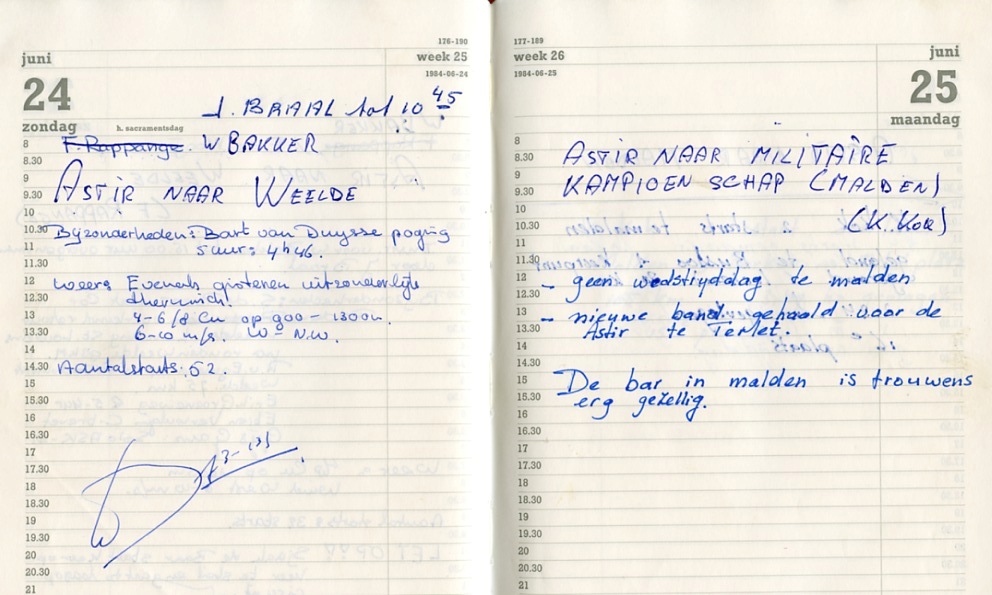 176-190
juni
week 25
24
1984-06-24
J. BRAAL tot 10 45
zondag
h. sacramentsdag
8 F. Rappange. W BAKKER
8.30
9
9.30 ASTIR NAAR WEELDE
10
10.30 Bijzonderheden: Bart van Duysse poging
11 5 uur: 4h46.
11.30
12 weer: Evenals gisteren uitzonderlijk
12.30 thermisch!
13 4-6/8 Cu op 900 - 1300m.
13.30 6-10 m/s. W à N.W.
14
14.30 Aantal starts: 52.
15
15.30
16
16.30
17
17.30
18
18.30
19
19.30
20
20.30
21
177-189
week 26
juni
1984-06-25
25
maandag
8
8.30 ASTIR NAAR MILITAIRE
9
9.30 KAMPIOENSCHAP (MALDEN)
10
10.30 (K. Kok)
11
11.30
12 - geen wedstrijddag te malden
12.30
13 - nieuwe band gehaald voor de
13.30 Astir te Terlet.
14
14.30
15 De bar in malden is trouwens
15.30 erg gezellig.
16
16.30
17
17.30
18
18.30
19
19.30
20
20.30
21